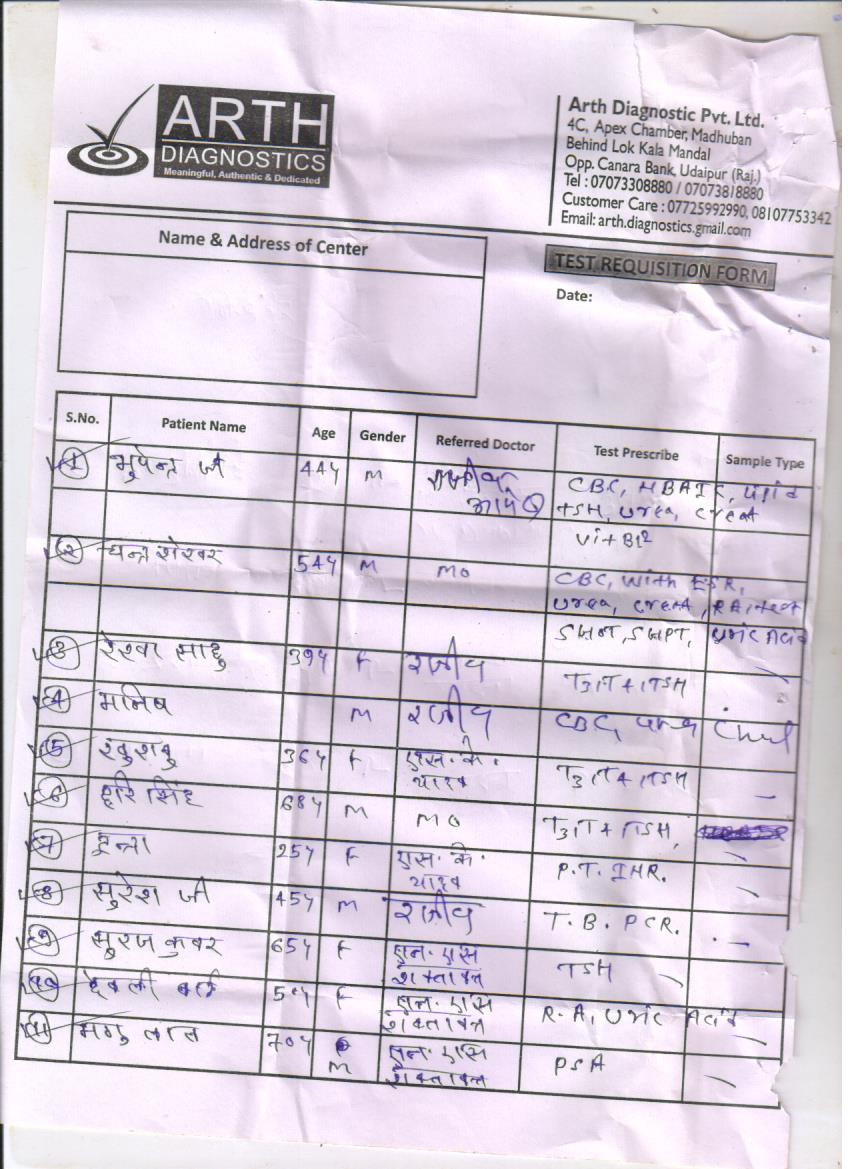 ARTH
DIAGNOSTICS
Meaningful, Authentic & Dedicated
Arth Diagnostic Pvt. Ltd.
4C, Apex Chamber, Madhuban
Behind Lok Kala Mandal
Opp. Canara Bank, Udaipur (Raj.)
Tel : 07073308880 / 07073818880
Customer Care : 07725992990, 08107753342
Email: arth.diagnostics.gmail.com
Name & Address of Center
TEST REQUISITION FORM
Date:
S.No. Patient Name Age Gender Referred Doctor Test Prescribe Sample Type
1 भुपेन्द्र जी 44y M CBC, HBA1C, lipid
TSH, urea, creat
Vit B12
2 चन्द्र शेखर 54y M MO CBC, with ESR,
urea, creat, RA, test
SGOT, SGPT, uric Acid
3 रेखा साहु 39y F राजीव T3, T4, TSH
4 मनिष M राजीव CBC,
5 खुशबु 36y F एस. के. यादव T3, T4, TSH
6 हरि सिंह 68y M MO T3, T4, TSH,
7 25y F एस. के. यादव P.T. INR.
8 सुरेश जी 45y M राजीव T.B. PCR.
9 सुरज कुवर 65y F एन. एस शक्तावत TSH
10 F एन. एस शक्तावत R.A, uric Acid
11 लाल 70y M एन. एस शक्तावत PSA